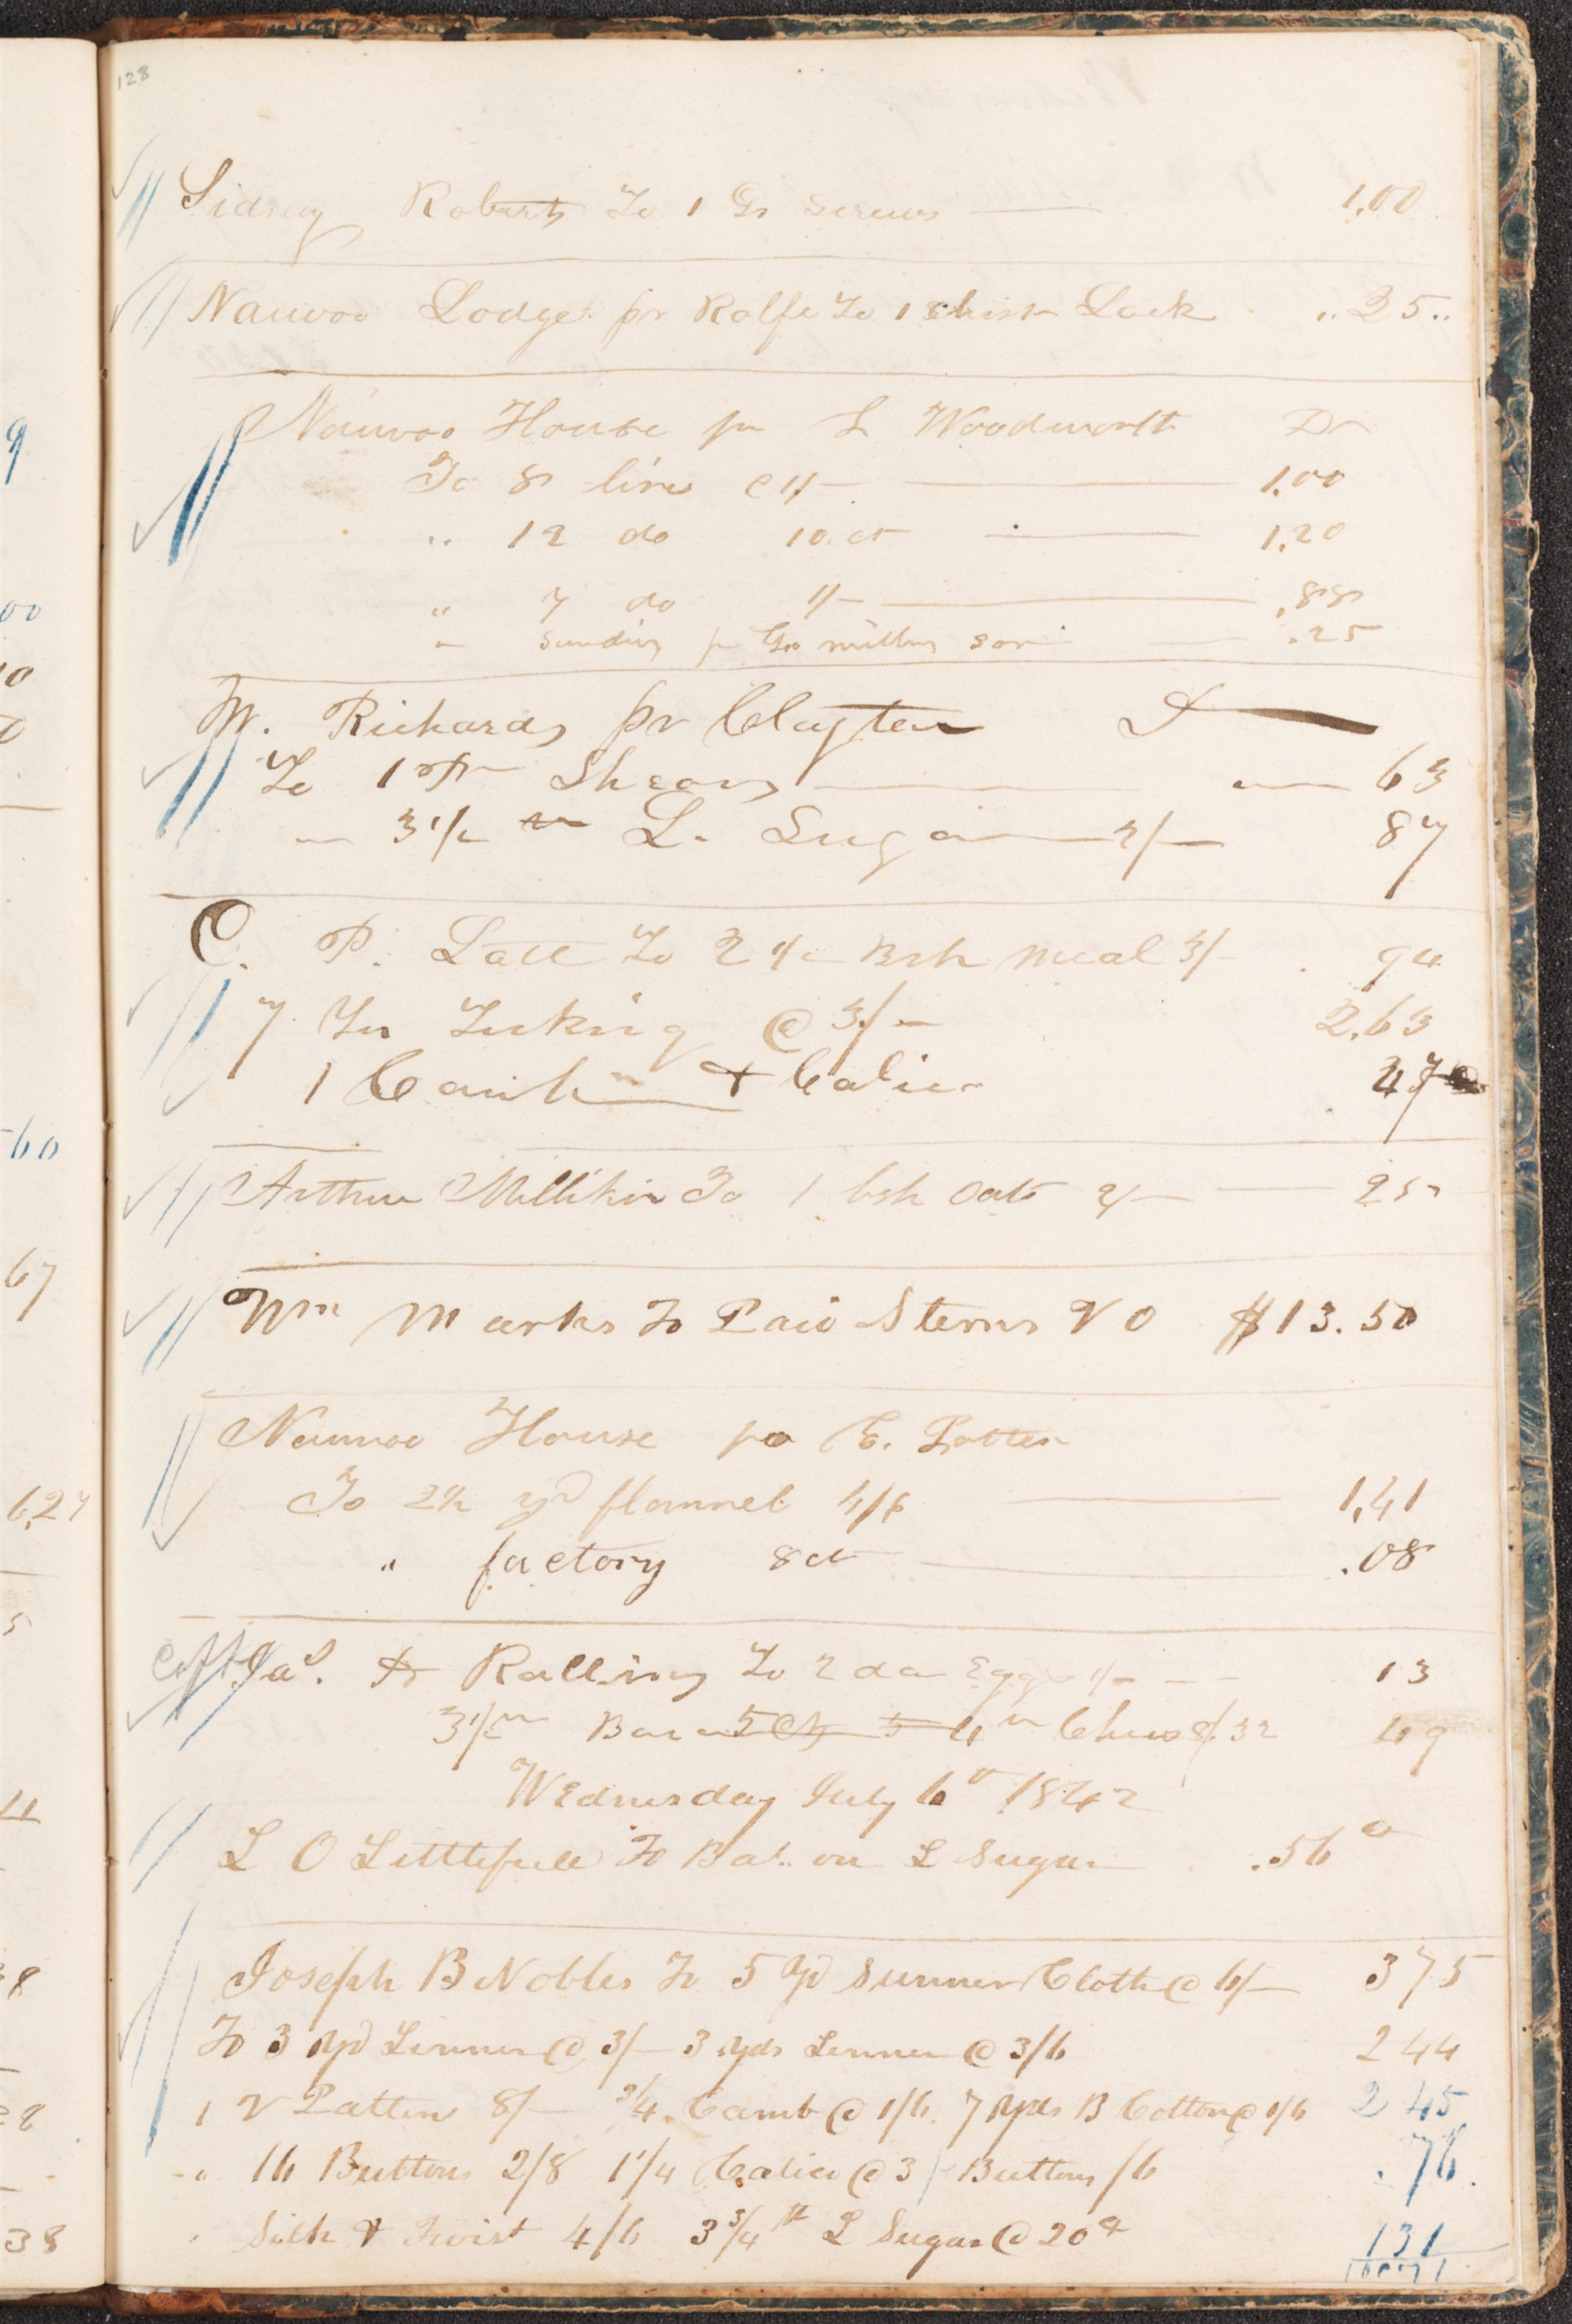 128
Sidney Roberts To 1 Gr Screws 1.00
Nauvoo Lodge pr Rolfe To 1 Chist Lock .. 25 ..
Nauvoo House pr L Woodworth Dr
To 8 lins @ 1/- 1.00
.. 12 do 10 ct 1.20
" 7 do 1/- .88
" Sundies pr Geo millers son .25
W. Richards pr Clayton D
To 1 pr Shears 63
" 3 1/2 L. Sugar 2/- 87
C. P. Lott To 2 1/2 Bsh Meal 3/- . 94
7 Yds Ticking @ 3/- 2.63
1 & Calico 47
Arthur Millikin To 1 bsh Oats 2/- 25
Wm Marks To Paid Sterns V O $13.50
Nauvoo House pr E. Potter
To 2 1/2 yd flannel 4/6 1,41
" factory 8 ct .08
Jas. Rollins To 2 doz Eggs 13
3 1/2 4 Chees 8/ 32 49
Wednesday July 6th 1842
L O Littlefield To Bal. on L Sugar .56
Joseph B Nobles To 5 Yd Summer Cloth @ 6/- 375
To 3 Yd Linnen @ 3/- 3 yds Linnen @ 3/6 244
1 V Pattern 8/- 3/4 Camb @ 1/6. 7 Yds B Cotton @ 1/6 2 45
" 16 Buttons 2/8 1 1/4 Calico @ 3/ Buttons /6 .76.
Silk & Twist 4/6 3 3/4 lb L Sugar @ 20 131
9
00
60
67
6,27
5
8
38